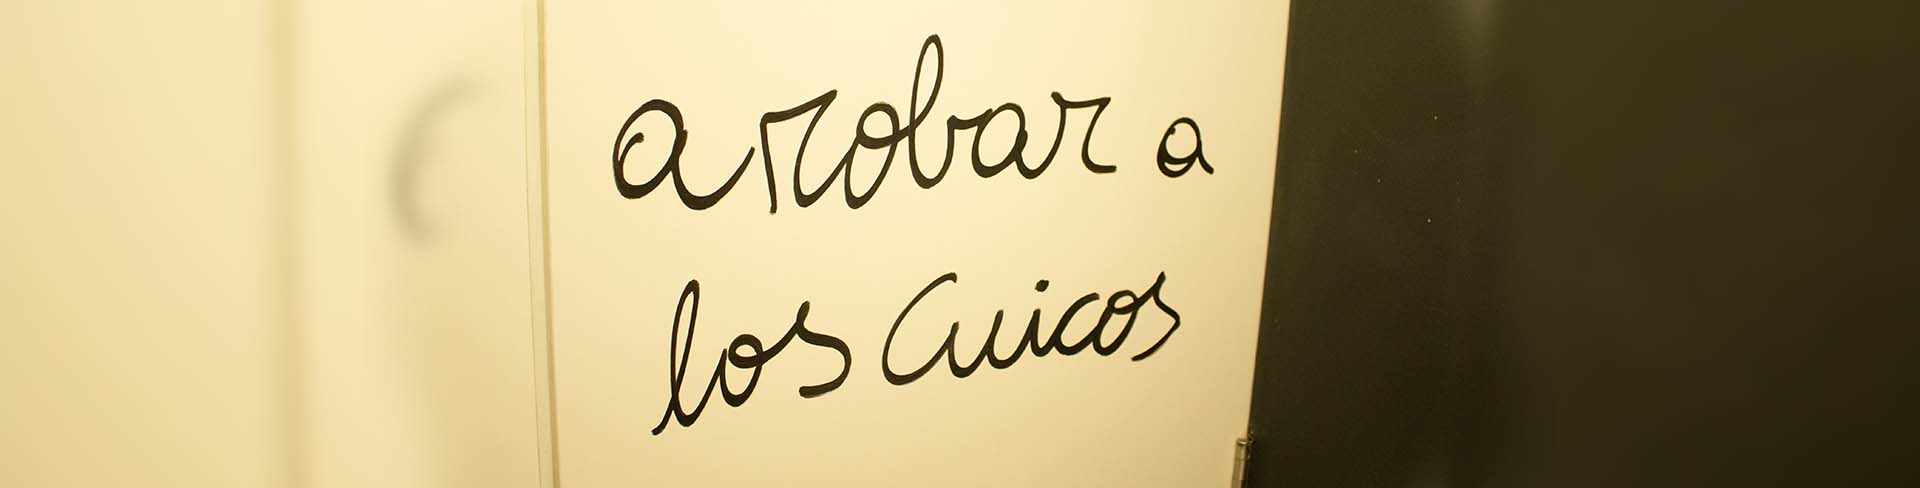 a robar a
los cuicos